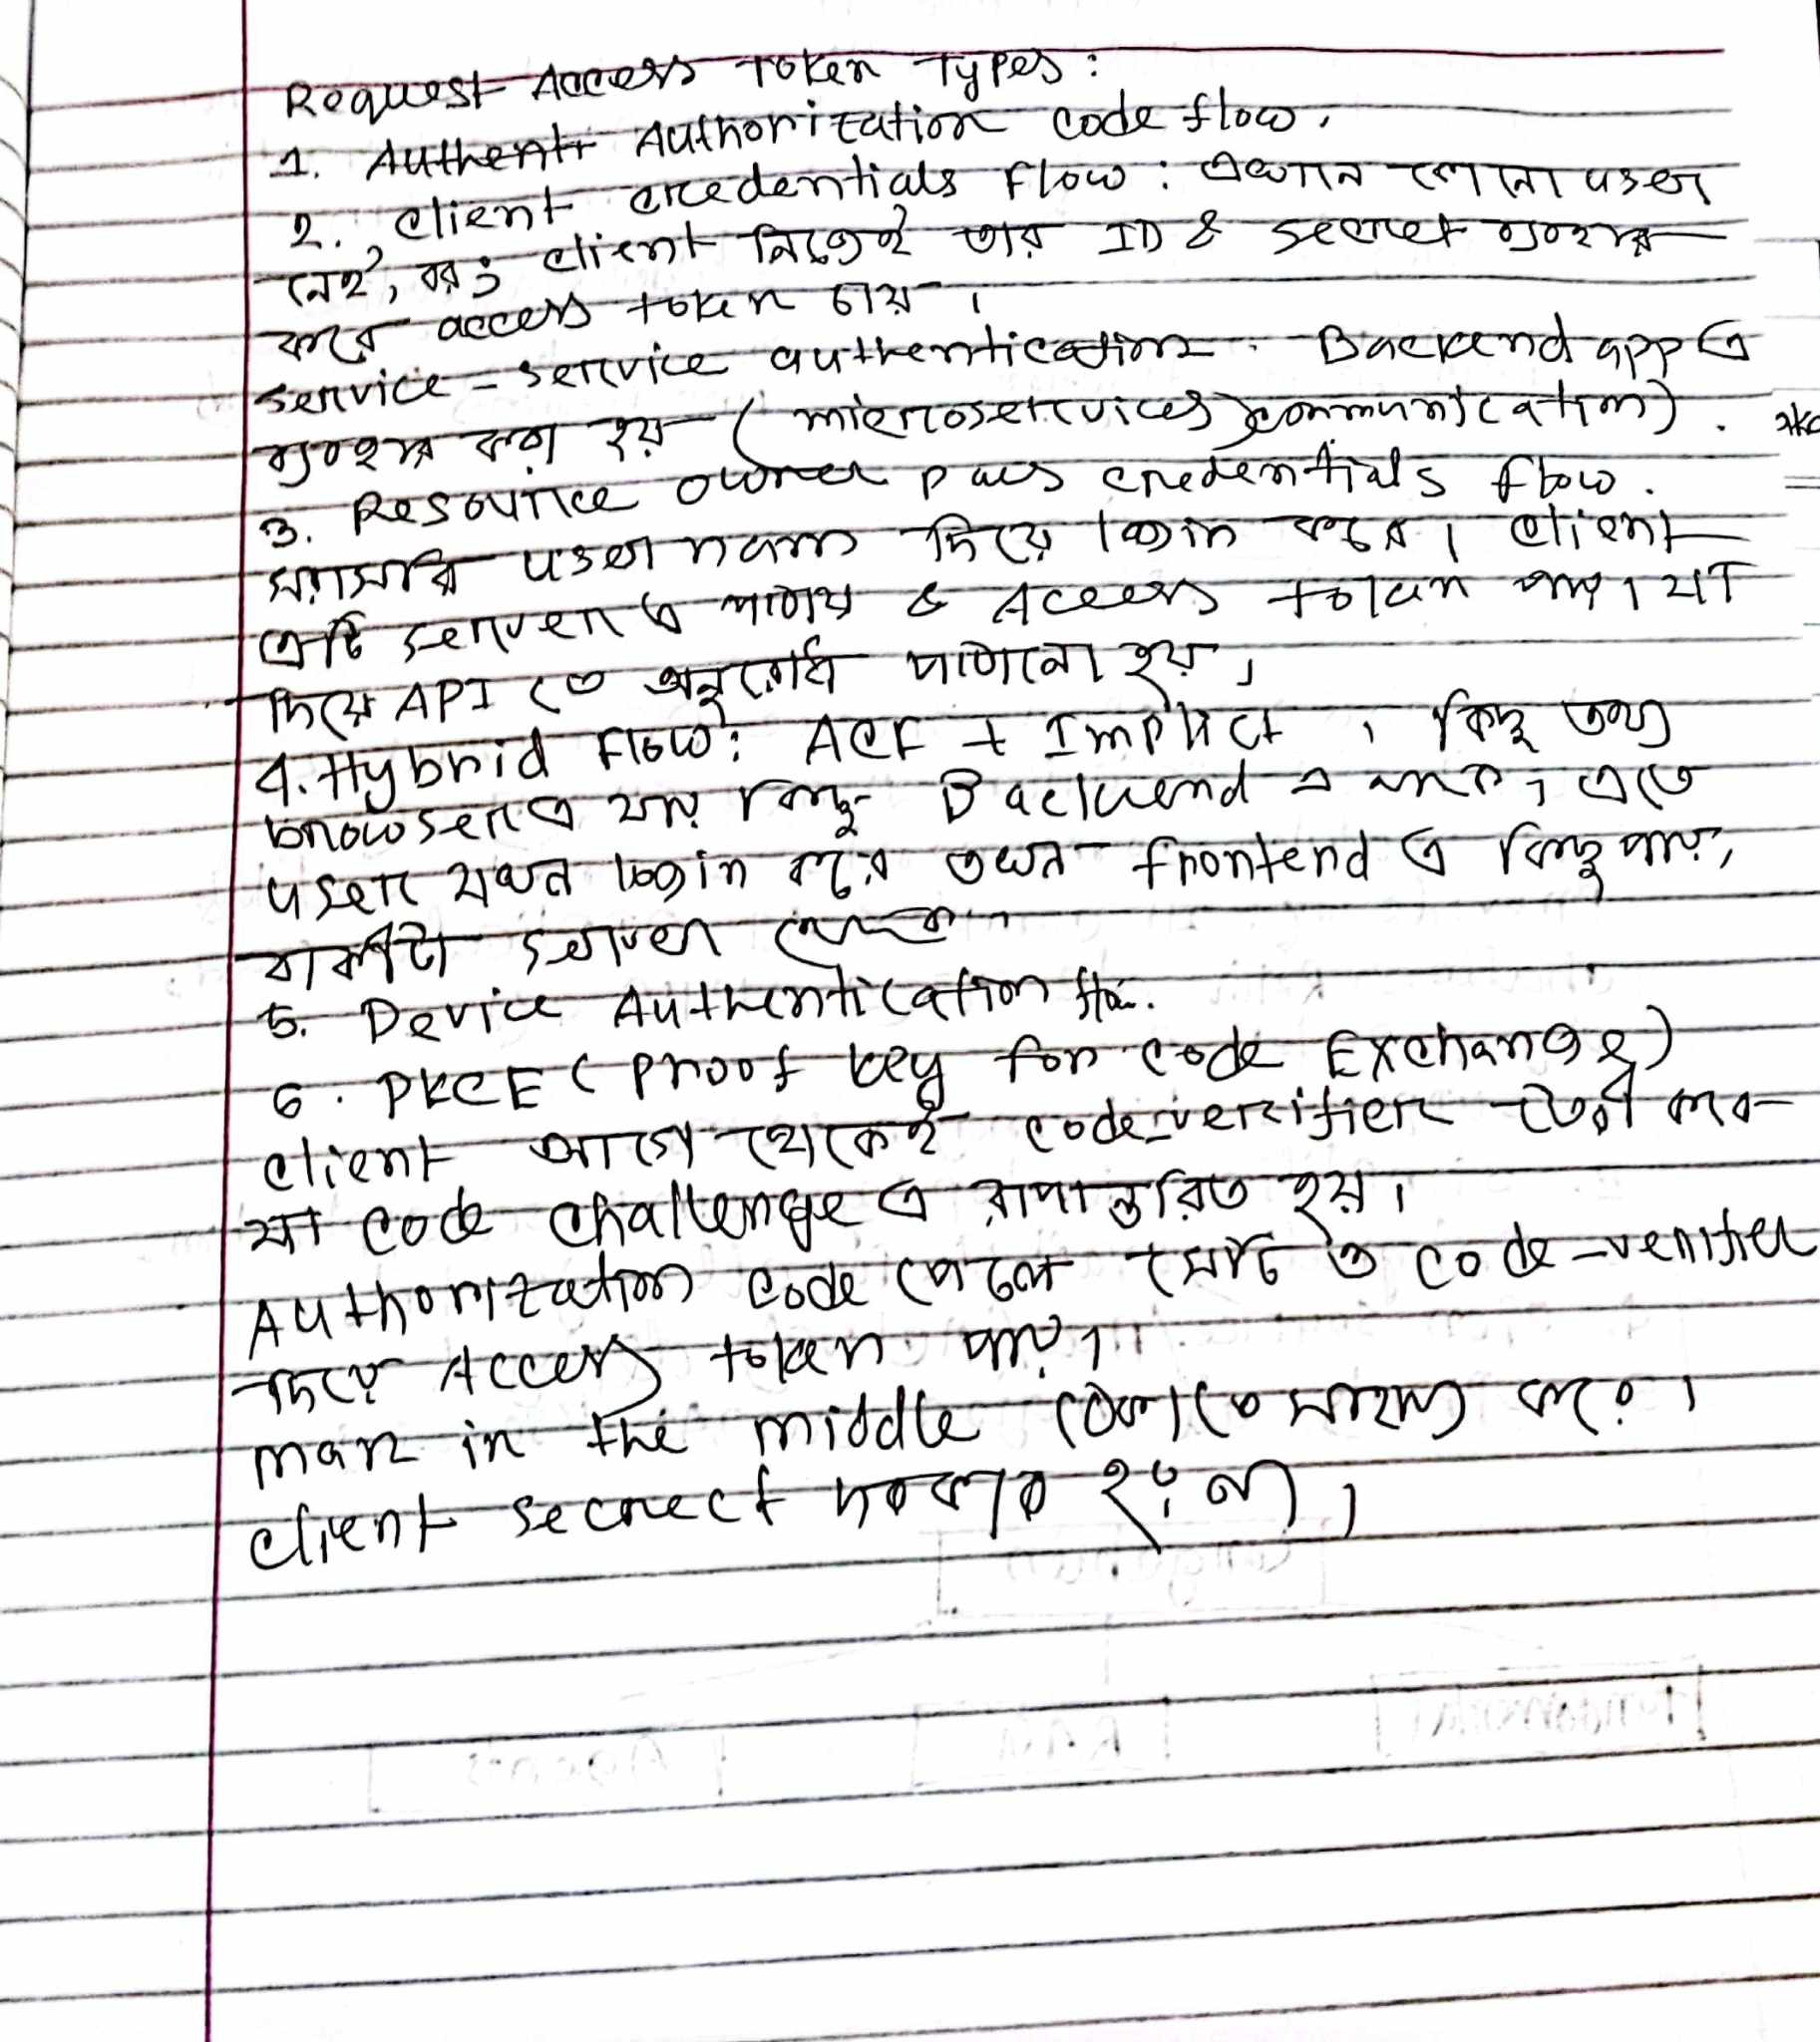 Request Access Token Types:
1. Authorization code flow.
2. client credentials flow: এখানে কোনো user
নেই, বরং client নিজেই তার ID & secret ব্যবহার
করে access token চায়।
service - service authentication. Backend app এ
ব্যবহার করা হয় (microservices communication).
3. Resource owner pass credentials flow.
সরাসরি user name দিয়ে login করে। client
এটি server এ পাঠায় & Access token পায়। যা
দিয়ে API তে অনুরোধ পাঠানো হয়,
4. Hybrid Flow: ACF + Implict, কিছু তথ্য
browser এ যায় কিছু Backend এ থাকে, এতে
user যখন login করে তখন frontend এ কিছু পায়,
বাকীটা server থেকে
5. Device Authentication flow.
6. PKCE (proof key for code Exchange)
client আগে থেকেই code_verifier তৈরী করে
যা code challenge এ রূপান্তরিত হয়।
Authorization code পেলে সেটি ও code-verifier
দিয়ে Access token পায়।
man in the middle ঠেকাতে সাহায্য করে।
client secrect দরকার হয় না,